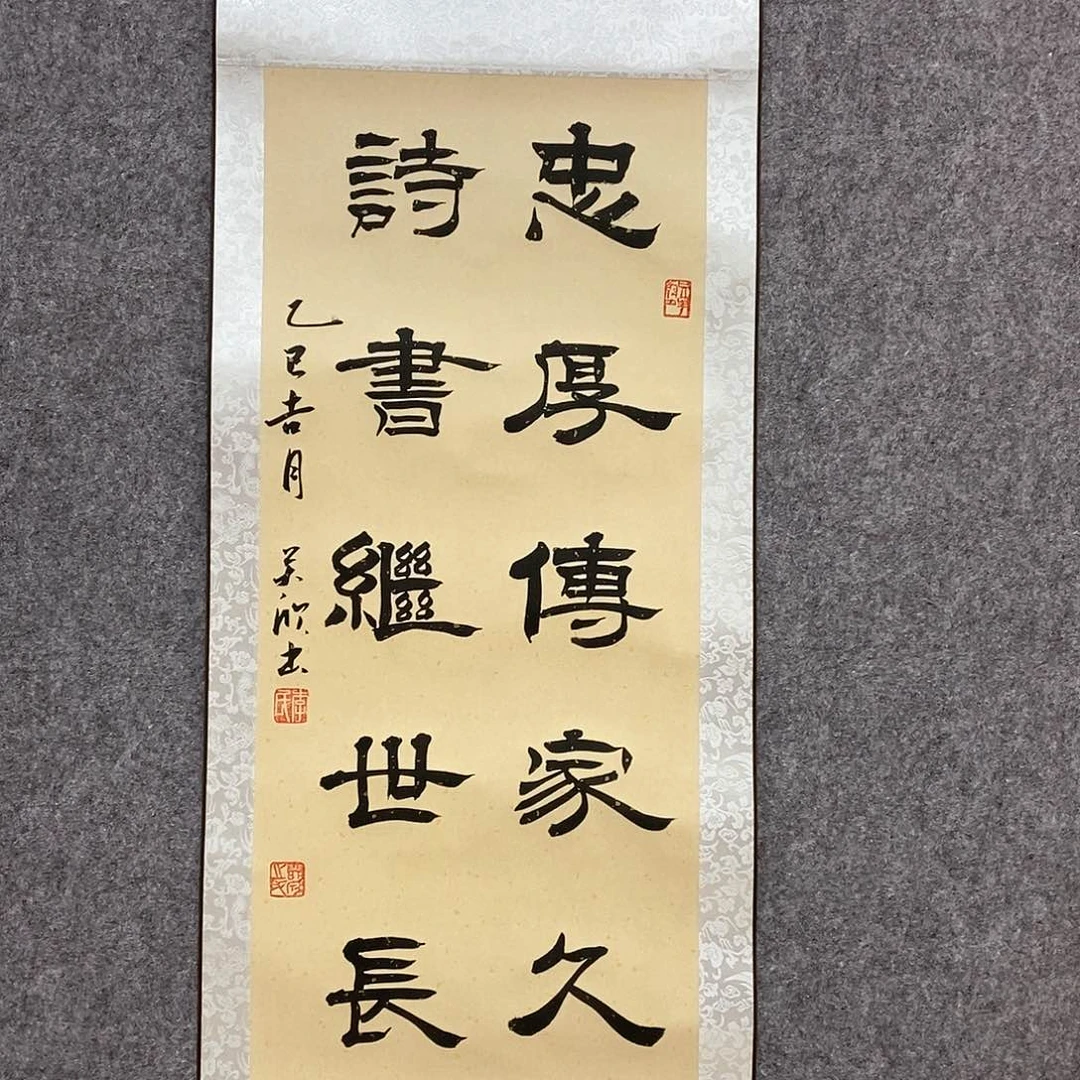 忠厚傳家久
詩書繼世長
乙巳吉月